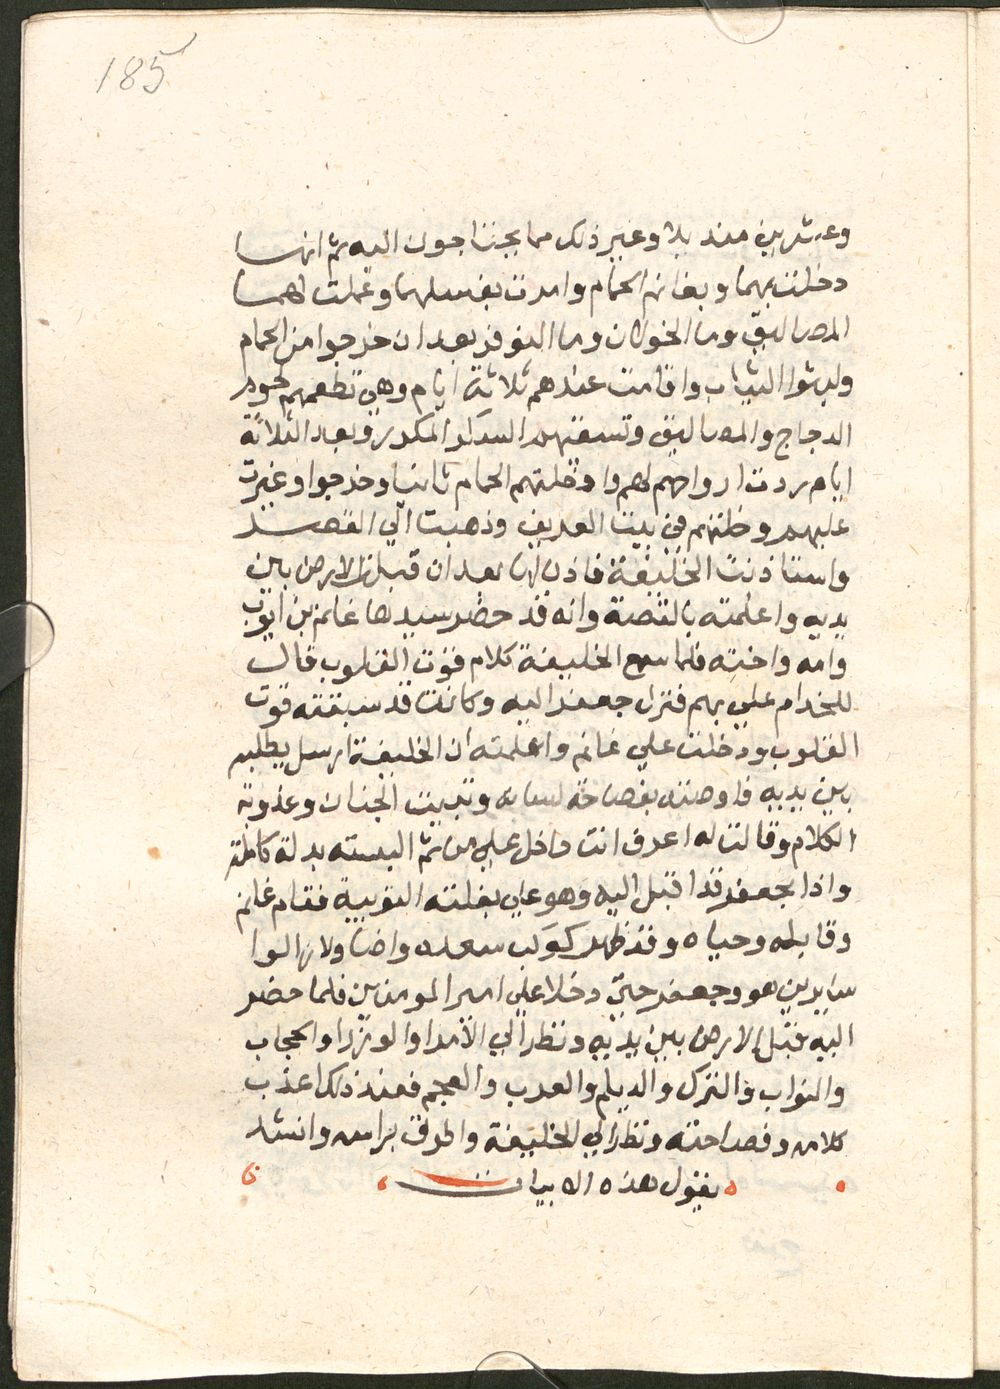 185
وعشرين منديلا وغير ذلك مما يحتاجون اليه ثم انها
دخلت بهما وبغانم الحمام وامرت بغسلهما وعملت لهما
المصاليق وما الخولان وما النوفر بعد ان خرجوا من الحمام
ولبسوا الثياب واقامت عندهم ثلاثة ايام وهي تطعمهم لحوم
الدجاج والمصاليق وتسقيهم السكر المكرر وبعد الثلاثة
ايام ردت ارواحهم لهم وادخلتهم الحمام ثانيا وخرجوا وغيرت
عليهم وخلتهم في بيت العريف وذهبت الي القصر
واستاذنت الخليفة فاذن لها بعد ان قبلت الارض بين
يديه واعلمته بالقصة وانه قد حضر سيدها غانم بن ايوب
وامه واخته فلما سمع الخليفة كلام قوت القلوب قال
للخدام علي بهم فنزل جعفر اليه وكانت قد سبقته قوت
القلوب ودخلت علي غانم واعلمته ان الخليفة ارسل يطلبه
بين يديه فاوصته بفصاحة لسانه وتثبيت الجنان وعذوبة
الكلام وقالت له اعرف انت داخل علي من ثم البسته بدلة كاملة
واذا بجعفر قد اقبل اليه وهو علي بغلته النوبية فقام غانم
وقابله وحياه وقد ظهر كوكب سعده واضا ولا زالوا
سايرين هو وجعفر حتي دخلا علي امير المومنين فلما حضر
اليه قبل الارض بين يديه ونظر الي الامرا والوزرا والحجاب
والنواب والترك والديلم والعرب والعجم فعند ذلك اعذب
كلامه وفصاحته ونظر الي الخليفة واطرق براسه وانشد
يقول هذه الابيات